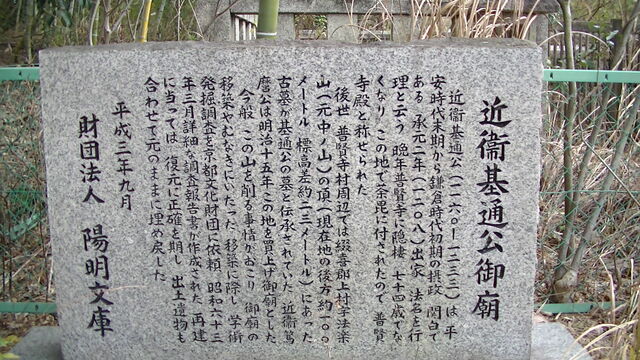 近衞基通公御廟
近衞基通公(一一六〇ー一二三三)は 平
安時代末期から鎌倉時代初期の摂政 関白で
ある 承元二年(一二〇八)出家 法名を行
理と云う 晩年普賢寺に隠棲 七十四歳で亡
くなり この地で荼毘に付されたので 普賢
寺殿と称せられた
後世 普賢寺村周辺では綴喜郡上村字法楽
山(元中ノ山)の頂(現在地の後方約一〇〇
メートル 標高差約一二メートル)にあった
古墓が基通公の墓と伝承されていた 近衞篤
麿公は明治十五年この地を買上げ御廟とした
今般 この山を削る事情がおこり 御廟の
移築やむなきにいたった 移築に際し 学術
発掘調査を京都文化財団に依頼 昭和六十三
年三月詳細な調査報告書が作成された 再建
に当っては 復元に正確を期し 出土遺物も
合わせて元のままに埋め戻した
平成三年九月
財団法人 陽明文庫